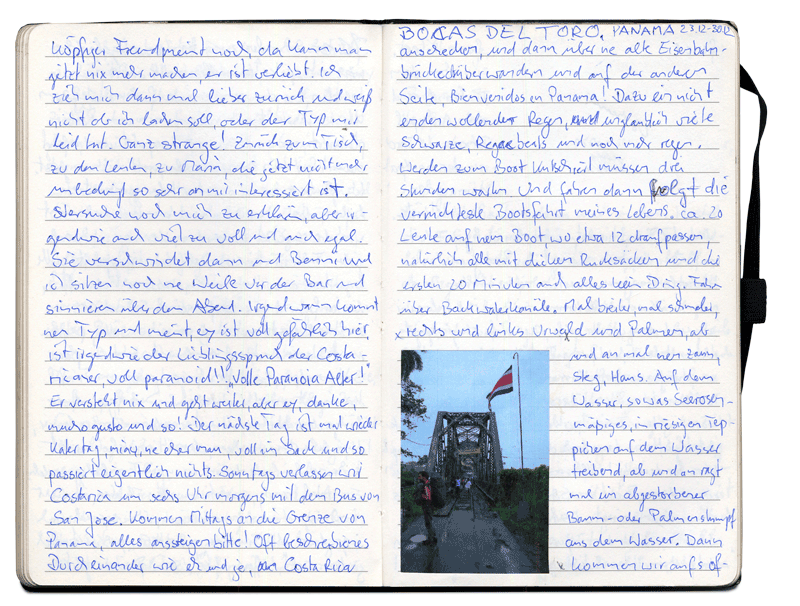 köpfiger Freund meint noch, da kann man
jetzt nix mehr machen, er ist verliebt. Ich
zieh mich dann mal lieber zurück und weiß
nicht ob ich lachen soll, oder der Typ mir
leid tut. Ganz strange! Zurück zum Tisch,
zu den Leuten, zu Maria, die jetzt nicht mehr
unbedingt so sehr an mir interessiert ist.
Versuche noch mich zu erklären, aber ir-
gendwie auch viel zu voll und auch egal.
Sie verschwindet dann und Benni und
ich sitzen noch ne Weile vor der Bar und
sinnieren über den Abend. Irgendwann kommt
nen Typ und meint, ey ist voll gefährlich hier,
ist irgendwie der Lieblingsspruch der Costa-
ricaner, voll paranoid!!! "Volle Paranoia Alter!"
Er versteht nix und geht weiter, aber ey, danke,
mucho gusto und so! Der nächste Tag ist mal wieder
Katertag, miau, ne eher mau, voll im Sack und so
passiert eigentlich nichts. Sonntags verlassen wir
Costarica um sechs Uhr morgens mit dem Bus von
San Jose. Kommen Mittags an die Grenze von
Panama, alles aussteigen bitte! Oft beschriebenes
Durcheinander wie eh und je, Costa Rica
BOCAS DEL TORO, PANAMA 23.12-30.12
auschecken, und dann über ne alte Eisenbahn-
brücke rüberwandern und auf der anderen
Seite, Bienvenidos in Panama! Dazu ein nicht
enden wollender Regen, und unglaublich viele
Schwarze, Regen und noch mehr regen.
Werden zum Boot kutschiert müssen drei
Stunden warten und dann folgt die
verrückteste Bootsfahrt meines Lebens. ca. 20
Leute auf nem Boot, wo etwa 12 draufpassen,
natürlich alle mit dicken Rucksäcken und die
ersten 20 Minuten auch alles kein Ding. Fahrn
über Backwaterkanäle. Mal breiter, mal schmaler,
rechts und links Urwald und Palmen, ab
und an mal nen Zaun,
Steg, Haus. Auf dem
Wasser, sowas Seerosen-
mäßiges, in riesigen Tep-
pichen auf dem Wasser
treibend, ab und an ragt
mal ein abgestorbener
Baum- oder Palmenstumpf
aus dem Wasser. Dann
kommen wir aufs of-